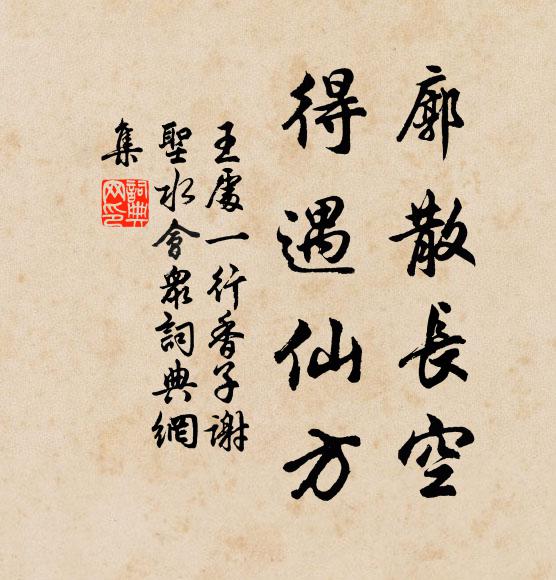 廓散長空
得遇仙方
王處一行香子謝
聖水會眾詞典網
集
詞典网印